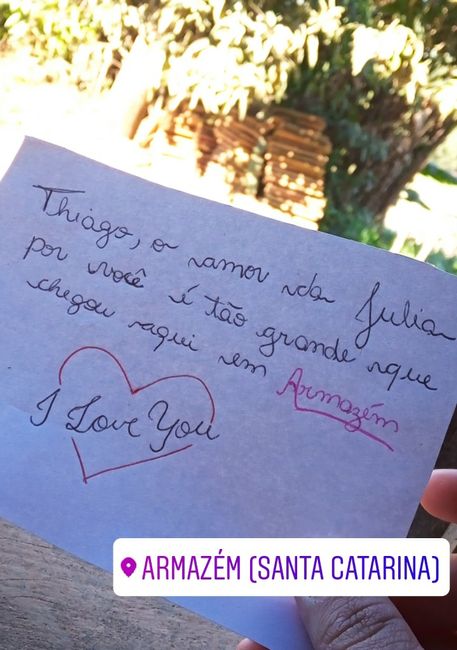 Thiago, o amor da Julia
por você é tão grande que
chegou aqui em Armazém
I Love You
ARMAZÉM (SANTA CATARINA)